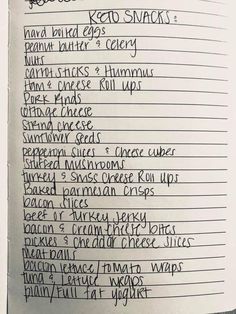 KETO SNACKS:
hard boiled eggs
peanut butter & celery
Nuts
carrot sticks & Hummus
Ham & cheese Roll ups
Pork Rinds
cottage cheese
string cheese
sunflower seeds
pepperoni slices & cheese cubes
stuffed mushrooms
turkey & swiss cheese Roll ups
Baked parmesan crisps
bacon slices
beef or turkey jerky
bacon & cream cheese bites
pickles & cheddar cheese slices
meatballs
bacon lettuce/tomato wraps
tuna & lettuce wraps
plain/full fat yogurt